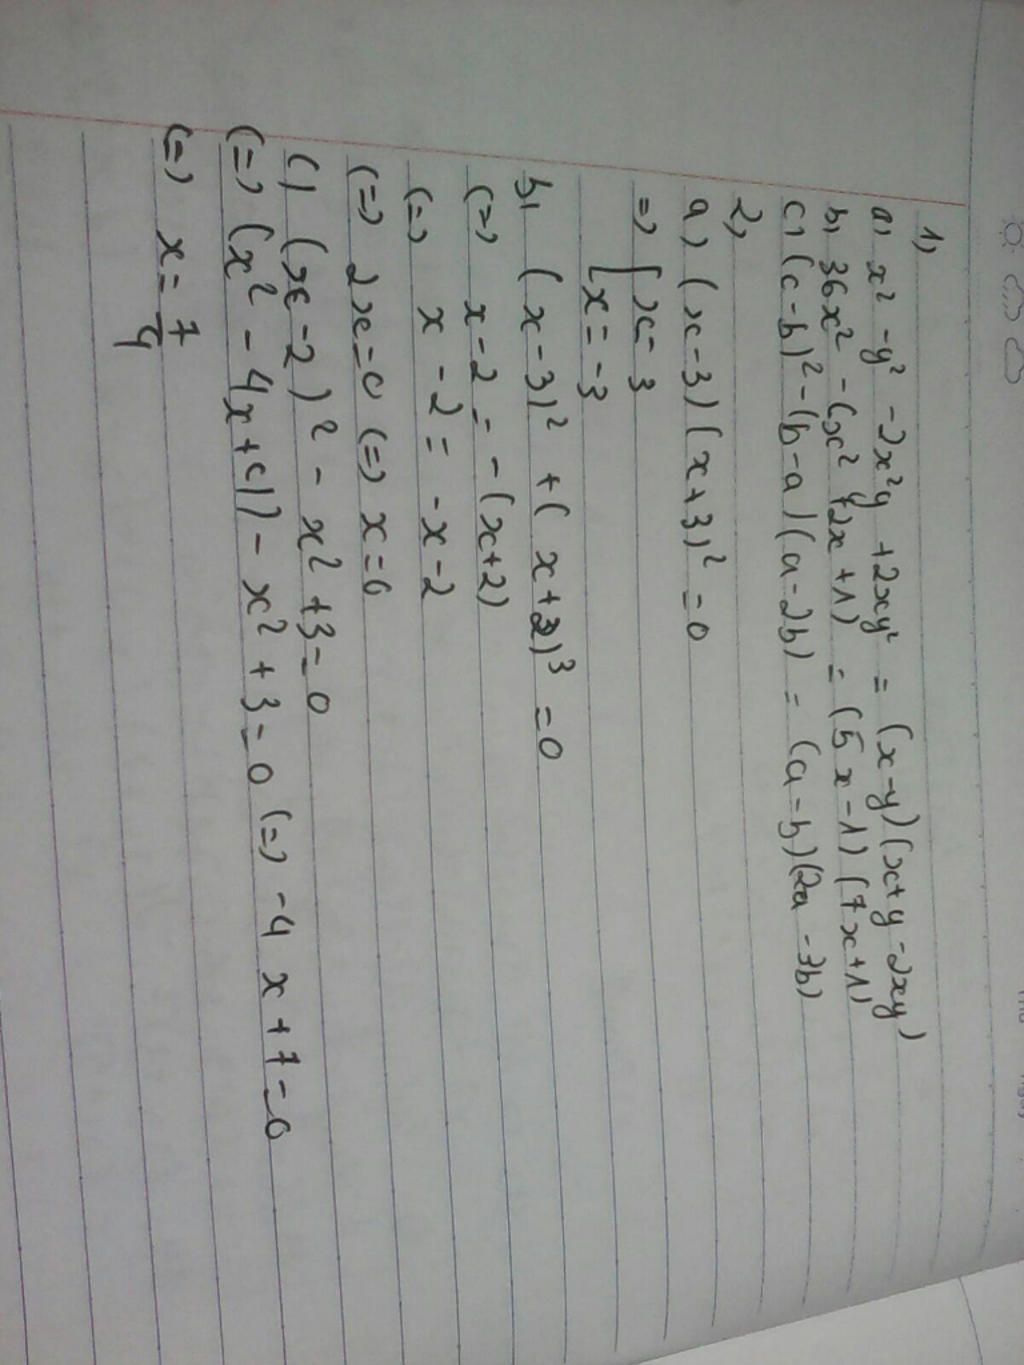 1,
a, x² - y² - 2x²y + 2xy² = (x-y)(x+y-2xy)
b, 36x² - (x² + 2x + 1) = (5x-1)(7x+1)
c, (c-b)² - (b-a)(a-2b) = (a-b)(2a-3b)
2,
a, (x-3)(x+3)² = 0
=> [ x = 3
[ x = -3
b, (x-3)² + (x+3)³ = 0
(=) x-2 = -(x+2)
(=) x-2 = -x-2
(=) 2x = 0 (=) x = 0
c) (x-2)² - x² + 3 = 0
(=) (x² - 4x + c1) - x² + 3 = 0 (=) -4x + 7 = 0
(=) x = 7/4